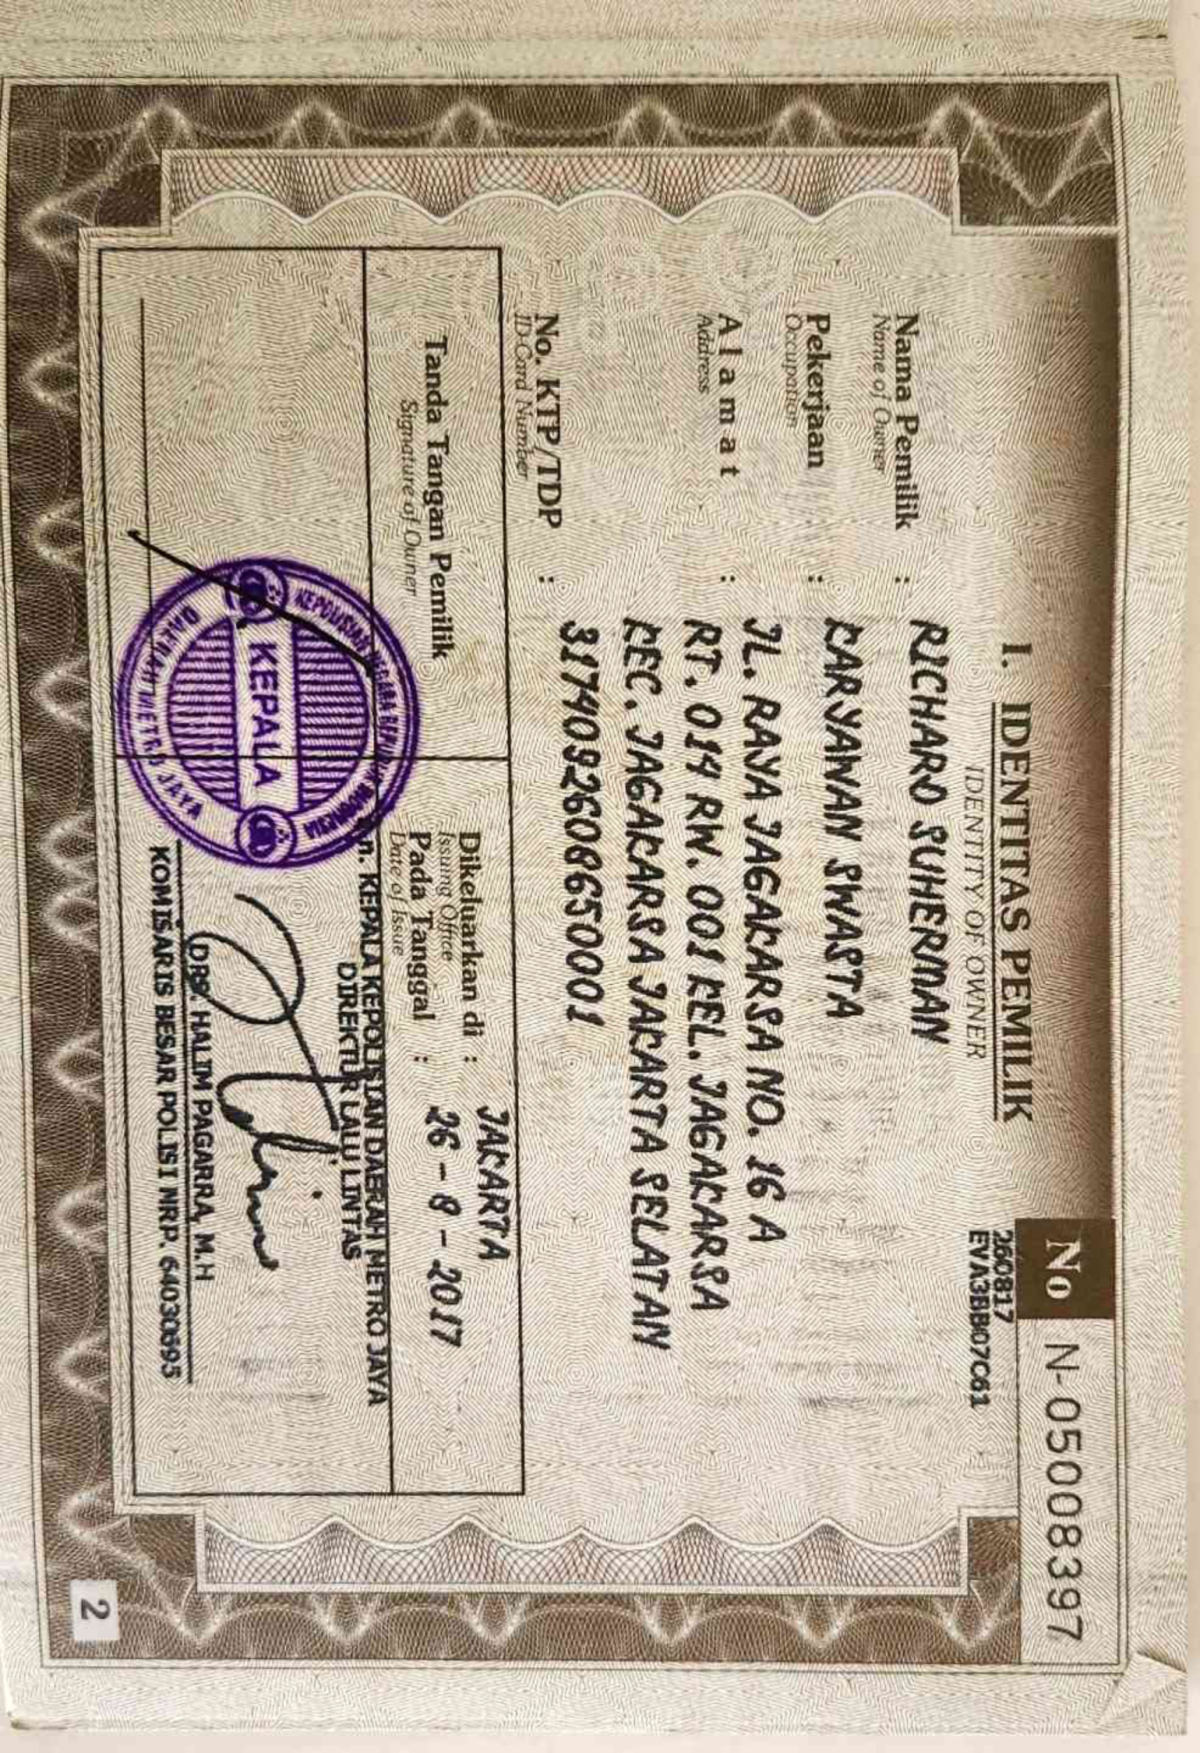 No N-05008397
260817
EVA3BB07C61
I. IDENTITAS PEMILIK
IDENTITY OF OWNER
Nama Pemilik : RICHARD SUHERMAN
Name of Owner
Pekerjaan : KARYAWAN SWASTA
Occupation
Alamat : JL. RAYA JAGAKARSA NO. 16 A
Address
RT. 014 RW. 001 KEL. JAGAKARSA
KEC. JAGAKARSA JAKARTA SELATAN
No. KTP/TDP : 3174092608650001
ID Card Number
Tanda Tangan Pemilik
Signature of Owner
Dikeluarkan di : JAKARTA
Issuing Office
Pada Tanggal : 26 - 8 - 2017
Date of Issue
n. KEPALA KEPOLISIAN DAERAH METRO JAYA
DIREKTUR LALU LINTAS
KEPOLISIAN NEGARA REPUBLIK INDONESIA
KEPALA
DAERAH METRO JAYA
DRS. HALIM PAGARRA, M.H
KOMISARIS BESAR POLISI NRP. 64030695
2